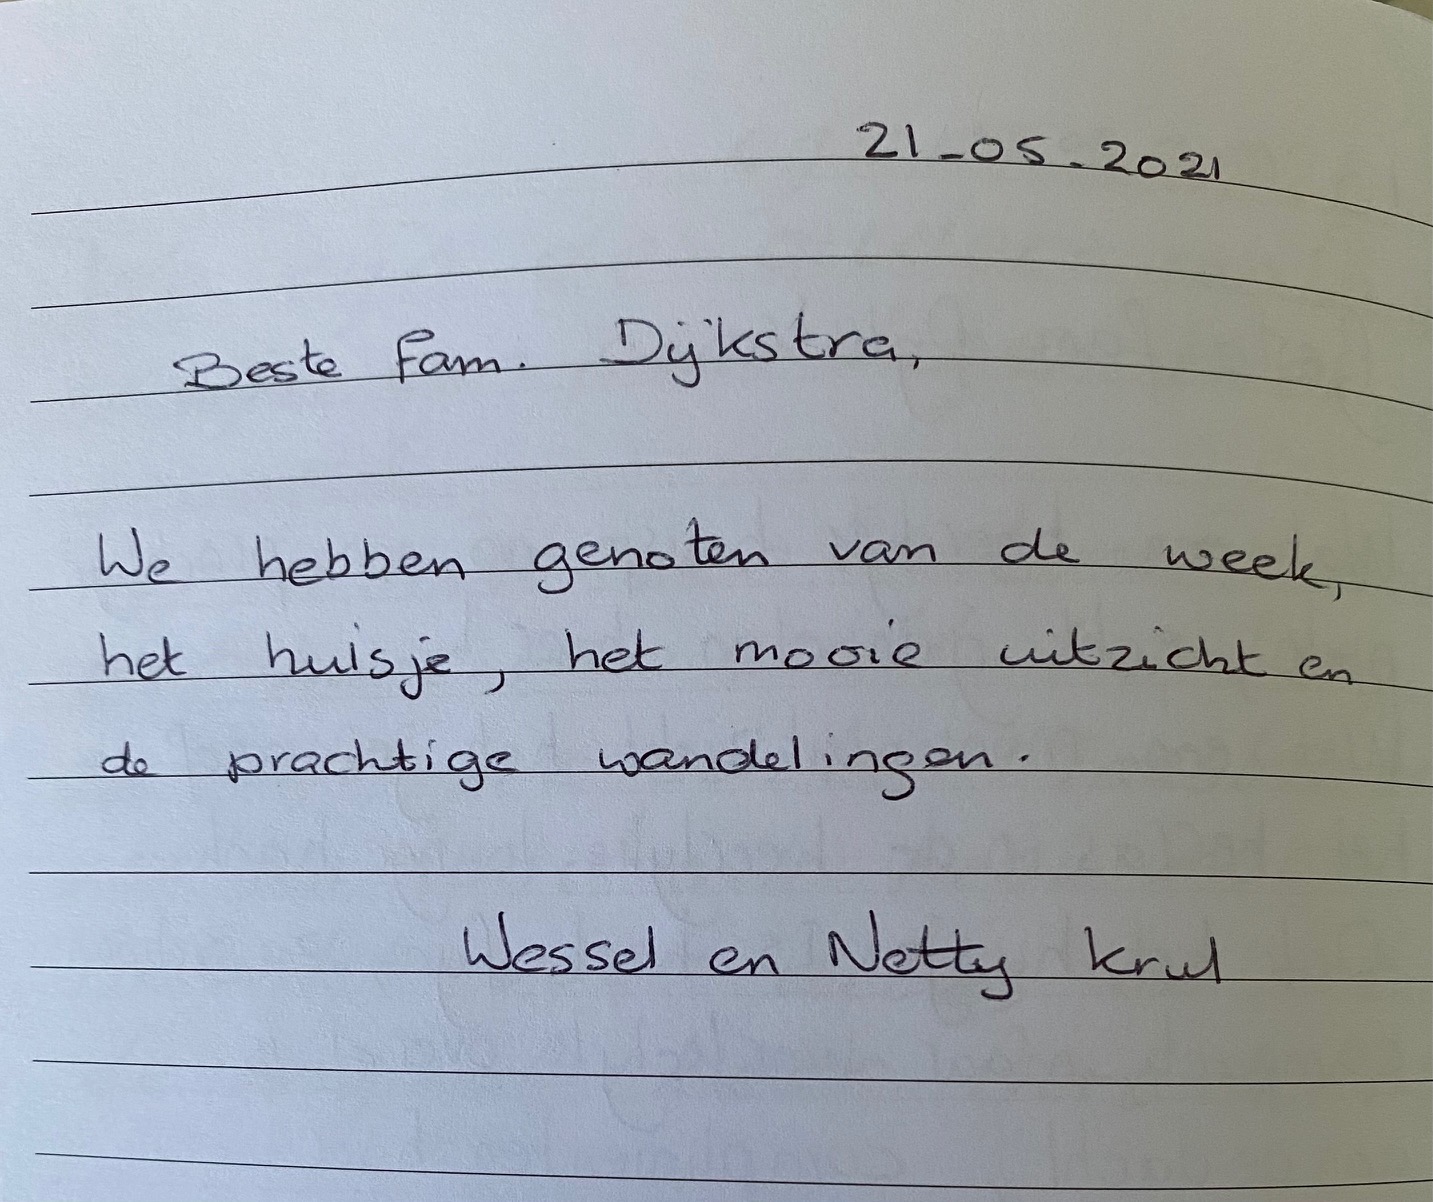 21-05-2021
Beste fam. Dijkstra,
We hebben genoten van de week,
het huisje, het mooie uitzicht en
de prachtige wandelingen.
Wessel en Netty Krul